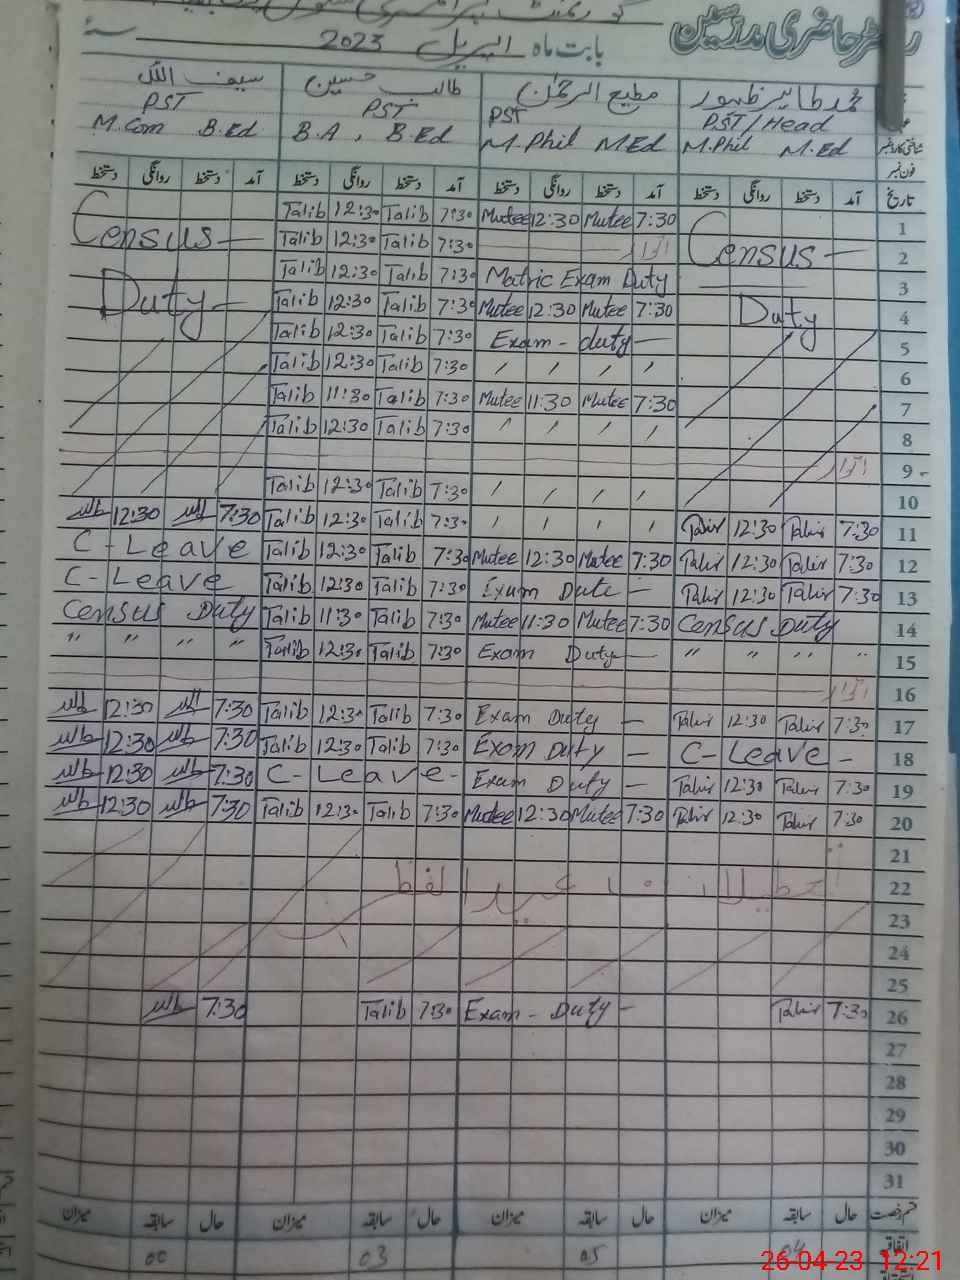 رجسٹر حاضری مدرسین
بابت ماہ اپریل 2023 سنہ
محمد طاہر ظہور مطیع الرحمٰن طالب حسین سیف اللہ
PST/Head PST PST PST
M.Phil M.Ed M.Phil MEd B.A, B.Ed M.Com B.Ed
شناختی کارڈ نمبر
فون نمبر
تاریخ آمد دستخط روانگی دستخط آمد دستخط روانگی دستخط آمد دستخط روانگی دستخط آمد دستخط روانگی دستخط
Talib 12:30 Talib 7:30 Mutee 12:30 Mutee 7:30 1
Census — Talib 12:30 Talib 7:30 اتوار Census — 2
Talib 12:30 Talib 7:30 Matric Exam Duty 3
Duty — Talib 12:30 Talib 7:30 Mutee 12:30 Mutee 7:30 Duty 4
Talib 12:30 Talib 7:30 Exam - duty — 5
Talib 12:30 Talib 7:30 ′ ′ ′ ′ 6
Talib 11:30 Talib 7:30 Mutee 11:30 Mutee 7:30 7
Talib 12:30 Talib 7:30 ′ ′ ′ ′ 8
اتوار 9
Talib 12:30 Talib 7:30 ′ ′ ′ ′ 10
12:30 7:30 Talib 12:30 Talib 7:30 ′ ′ ′ ′ Tahir 12:30 Tahir 7:30 11
C-Leave Talib 12:30 Talib 7:30 Mutee 12:30 Mutee 7:30 Tahir 12:30 Tahir 7:30 12
C-Leave Talib 12:30 Talib 7:30 Exam Dute — Tahir 12:30 Tahir 7:30 13
Census Duty Talib 11:30 Talib 7:30 Mutee 11:30 Mutee 7:30 Census Duty 14
" " " " Talib 12:30 Talib 7:30 Exam Duty — " " " " 15
اتوار 16
12:30 7:30 Talib 12:30 Talib 7:30 Exam Duty — Tahir 12:30 Tahir 7:30 17
12:30 7:30 Talib 12:30 Talib 7:30 Exam Duty — C-Leave - 18
12:30 7:30 C-Leave- Exam Duty — Tahir 12:30 Tahir 7:30 19
12:30 7:30 Talib 12:30 Talib 7:30 Mutee 12:30 Mutee 7:30 Tahir 12:30 Tahir 7:30 20
21
تعطیلات عید الفطر 22
23
24
25
7:30 Talib 7:30 Exam - Duty - Tahir 7:30 26
27
28
29
30
31
قسم رخصت حال سابقہ میزان حال سابقہ میزان حال سابقہ میزان حال سابقہ میزان
اتفاقیہ 04 05 03 00
26-04-23 12:21